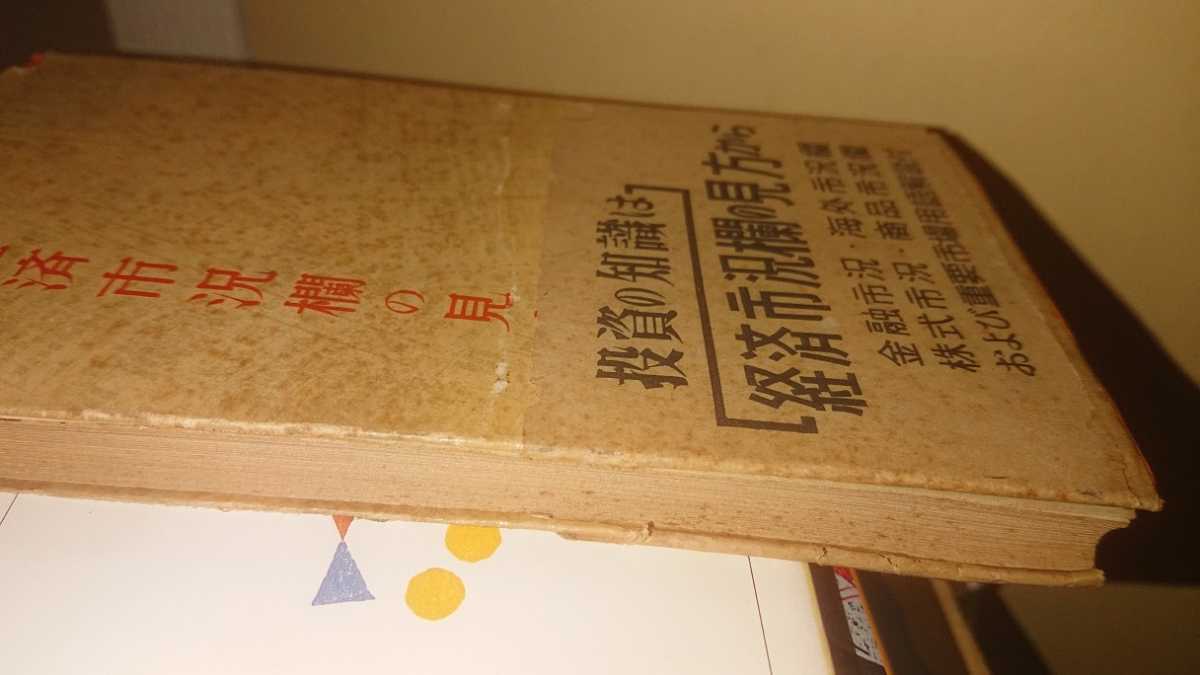 済市況欄の見
投資の知識は
経済市況欄の見方から
金融市況・海外市況欄
株式市況・商品市況欄
および重要市場用語解説付